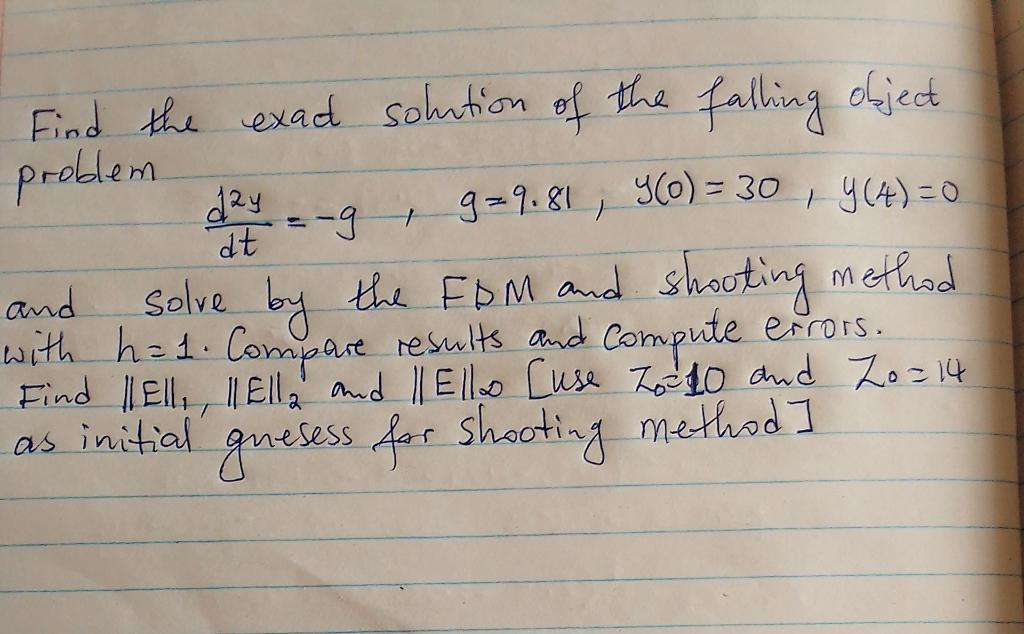 Find the exact solution of the falling object
problem
d²y/dt = -g , g=9.81, y(0) = 30 , y(4)=0
and solve by the FDM and shooting method
with h=1. Compare results and compute errors.
Find ||E||₁, ||E||₂ and ||E||∞ [use Z₀=10 and Z₀=14
as initial gnesess for shooting method]